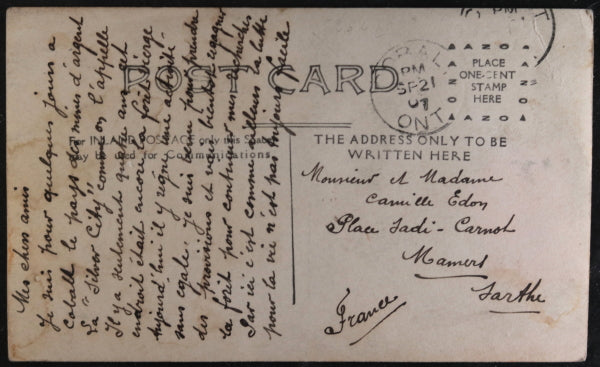 POST CARD
FOR INLAND POSTAGE only this Space
may be used for Communications
THE ADDRESS ONLY TO BE
WRITTEN HERE
PLACE
ONE-CENT
STAMP
HERE
PM
SP 21
07
ONT
Mes chers amis
Je suis pour quelques jours a
Cobalt le pays des mines d'argent
La "Silver City" comme on l'appelle
Il y a seulement quatre ans cet
endroit était encore la forêt vierge
Aujourd'hui il y règne une activité
sans egale. Je suis venu pour prendre
des provisions et vais bientôt regagner
la forêt pour continuer mes recherches
Par ici c'est comme ailleurs la lutte
pour la vie n'est pas toujours facile
Monsieur et Madame
Camille Edon
Place Sadi-Carnot
Mamers
Sarthe
France